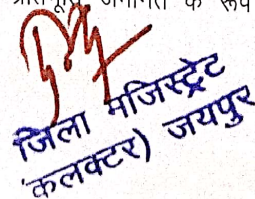 जमानत के रूप
जिला मजिस्ट्रेट
(कलक्टर) जयपुर